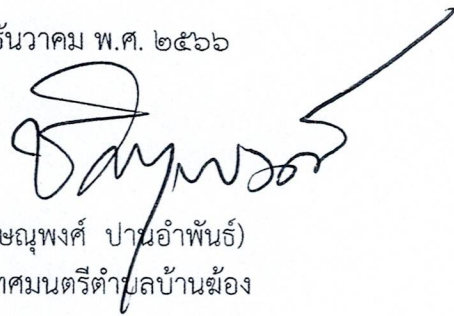 ธันวาคม พ.ศ. ๒๕๖๖
ษณุพงศ์ ปานอำพันธ์)
ทศมนตรีตำบลบ้านฆ้อง